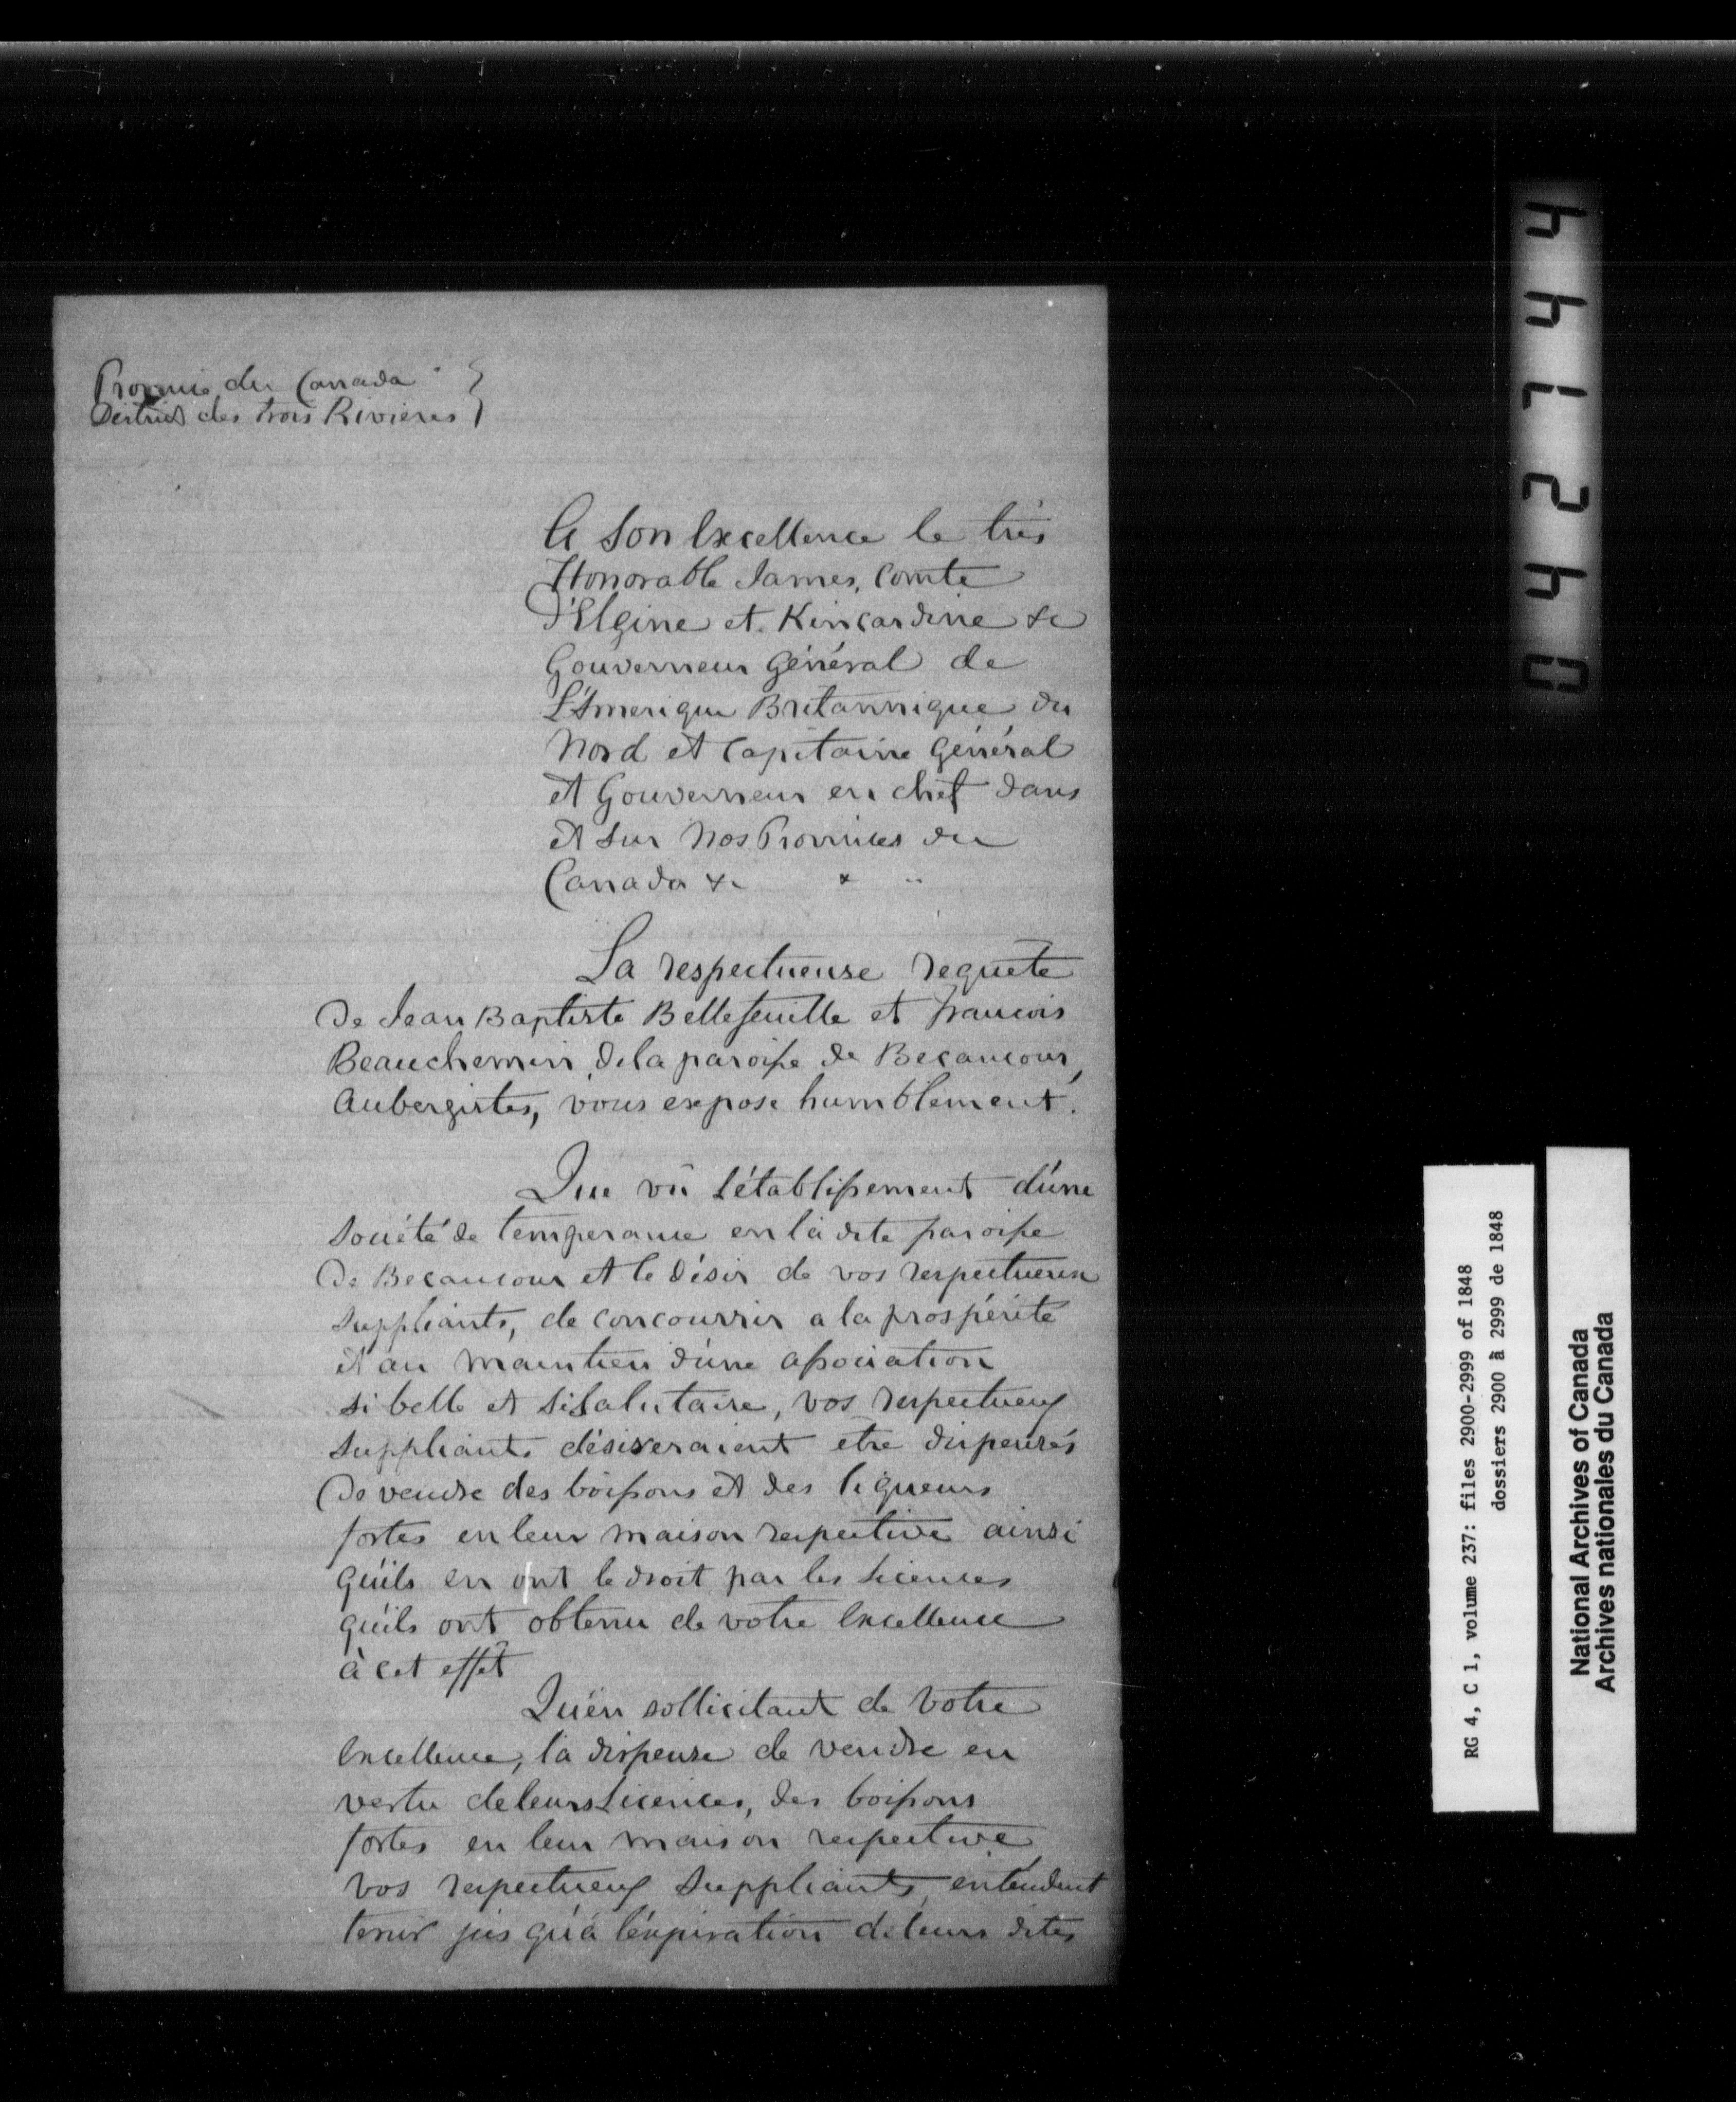 Province du Canada
District des trois Rivieres
A Son Excellence le très
Honorable James, Comte
d'Elgine et Kincardine &c
Gouverneur Général de
L'Amerique Britannique du
Nord et Capitaine Général
et Gouverneur en chef dans
et sur nos Provinces du
Canada &c
La respectueuse requete
De Jean Baptiste Bellefeuille et francois
Beauchemin, de la paroisse de Becancour,
Aubergistes, vous expose humblement.
Que vû l'établissement d'une
Société de temperance en la dite paroisse
De Becancour et le désir de vos respectueux
suppliants, de concourrir a la prospérité
et au maintien d'une association
si belle et si salutaire, vos respectueux
suppliants désireraient etre dispensés
De vendre des boissons et des liqueurs
fortes en leur maison respective ainsi
qu'ils en ont le droit par les licences
qu'ils ont obtenu de votre Excellence
à cet effet
Qu'en sollicitant de Votre
Excellence, la dispense de vendre en
vertu de leurs licences, des boissons
fortes en leur maison respective
vos respectueux Suppliants, entendent
tenir jusqu'à l'expiration de leurs dites
44124 0
RG 4, C 1, volume 237: files 2900-2999 of 1848
dossiers 2900 à 2999 de 1848
National Archives of Canada
Archives nationales du Canada